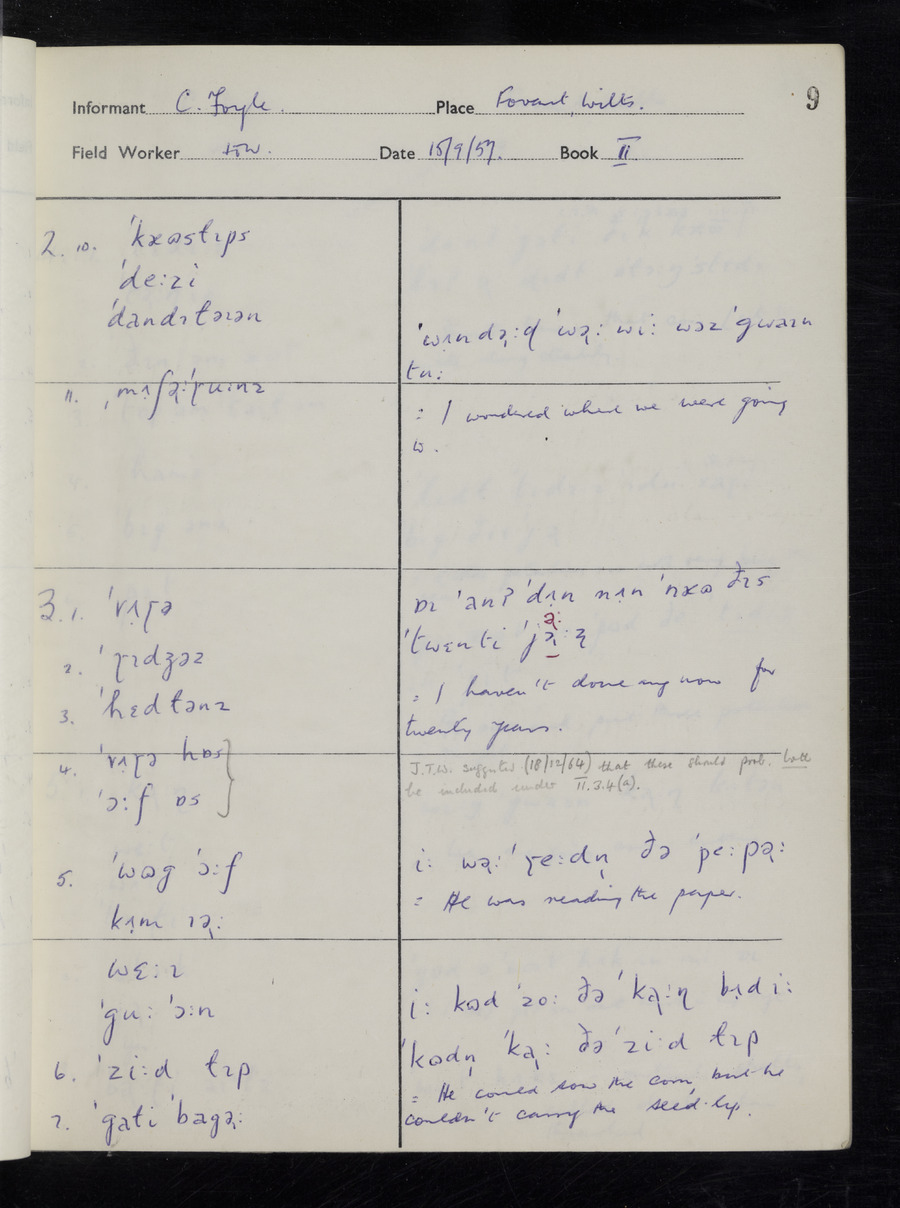 9
Informant C. Foyle. Place Fovant, Wilts.
Field Worker Date 15/9/57. Book II
2. 10. ˈkɤʊstɪps
ˈdeːzi
ˈdandɪtəɪən
11.
ˈwɪndəːd ˈwəː wiː wəz ˈgwaɪn
tuː
= I wondered where we were going
to.
3. 1. ˈvɪɽə
2. ˈɽɪdʒəz
3. ˈhɛdtənz
4. ˈvɪɽə hɒs
ˈɔːf ɒs
5. ˈwɒg ˈɔːf
kɪm ɪəː
wɛːɪ
ˈguː ˈɔːn
6. ˈziːd tɪp
7. ˈgati ˈbagəː
ɒɪ ˈanʔ ˈdɪn nɪn ˈnɤʊ ðɪs
ˈtwɛnti
= I haven't done any now for
twenty years.
J.T.W. suggested (18/12/64) that these should prob. both
be included under II.3.4(a).
iː wəː ˈɽeːdn̩ ðə ˈpɛːpəː
= He was reading the paper.
iː kʊd ˈzoː ðə ˈkɑːn bɪd iː
ˈkʊdn̩ ˈkaː ðə ˈziːd tɪp
= He could sow the corn, but he
couldn't carry the seed-lip.